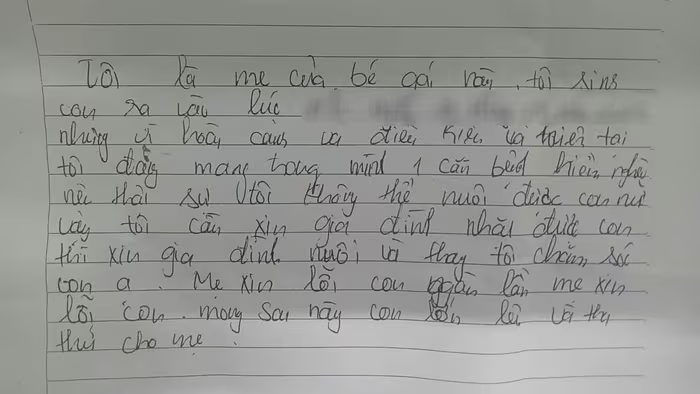 Tôi là mẹ của bé gái này, tôi sinh
con ra vào lúc
nhưng vì hoàn cảnh và điều kiện và hiện tại
tôi đang mang trong mình 1 căn bệnh hiểm nghèo
nên thật sự tôi không thể nuôi được con nữ
vậy tôi cần xin gia đình nhân được con
thì xin gia đình nuôi và thay tôi chăm sóc
con ạ. Mẹ xin lỗi con ngàn lần mẹ xin
lỗi con. mong sau này con lớn lên và tha
thứ cho mẹ.